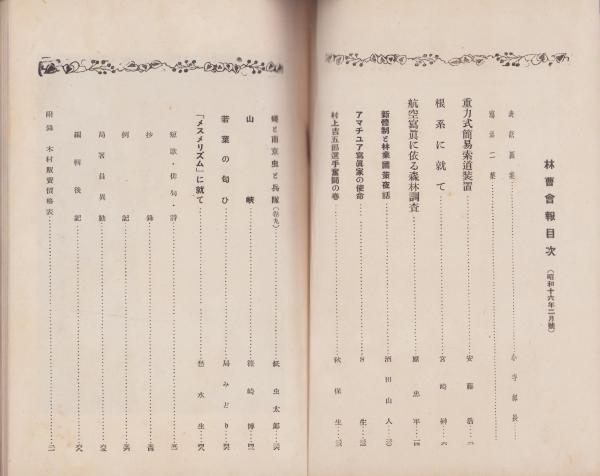 林曹會報目次（昭和十六年二月號）
表紙圖案
寫眞二葉……小寺部長
重力式簡易索道裝置……安藤浩
根系に就て……宮崎
航空寫眞に依る森林調査……原忠平
新體制と林業國策夜話……酒田山人
アマチユア寫眞家の使命……生
村上吉五郎選手奮鬪の卷……秋保生
蠅と南京虫と兵隊（卷九）……蚊虫太郎
山峽……篠崎博
若葉の匂ひ……局みどり
「メスメリズム」に就て……愁水生
短歌・俳句・詩
抄錄
例記
局署員異動
編輯後記
附錄 木材販賣價格表